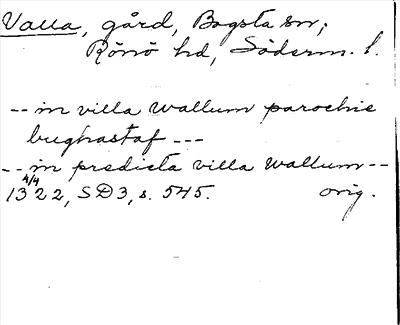 Valla, gård, Bogsta sn,
Rönö hd, Söderm. l.
-- in villa wallum parochie
bughastaf ---
-- in predicta villa wallum --
1322, 4/4 SD3, s. 545. orig.